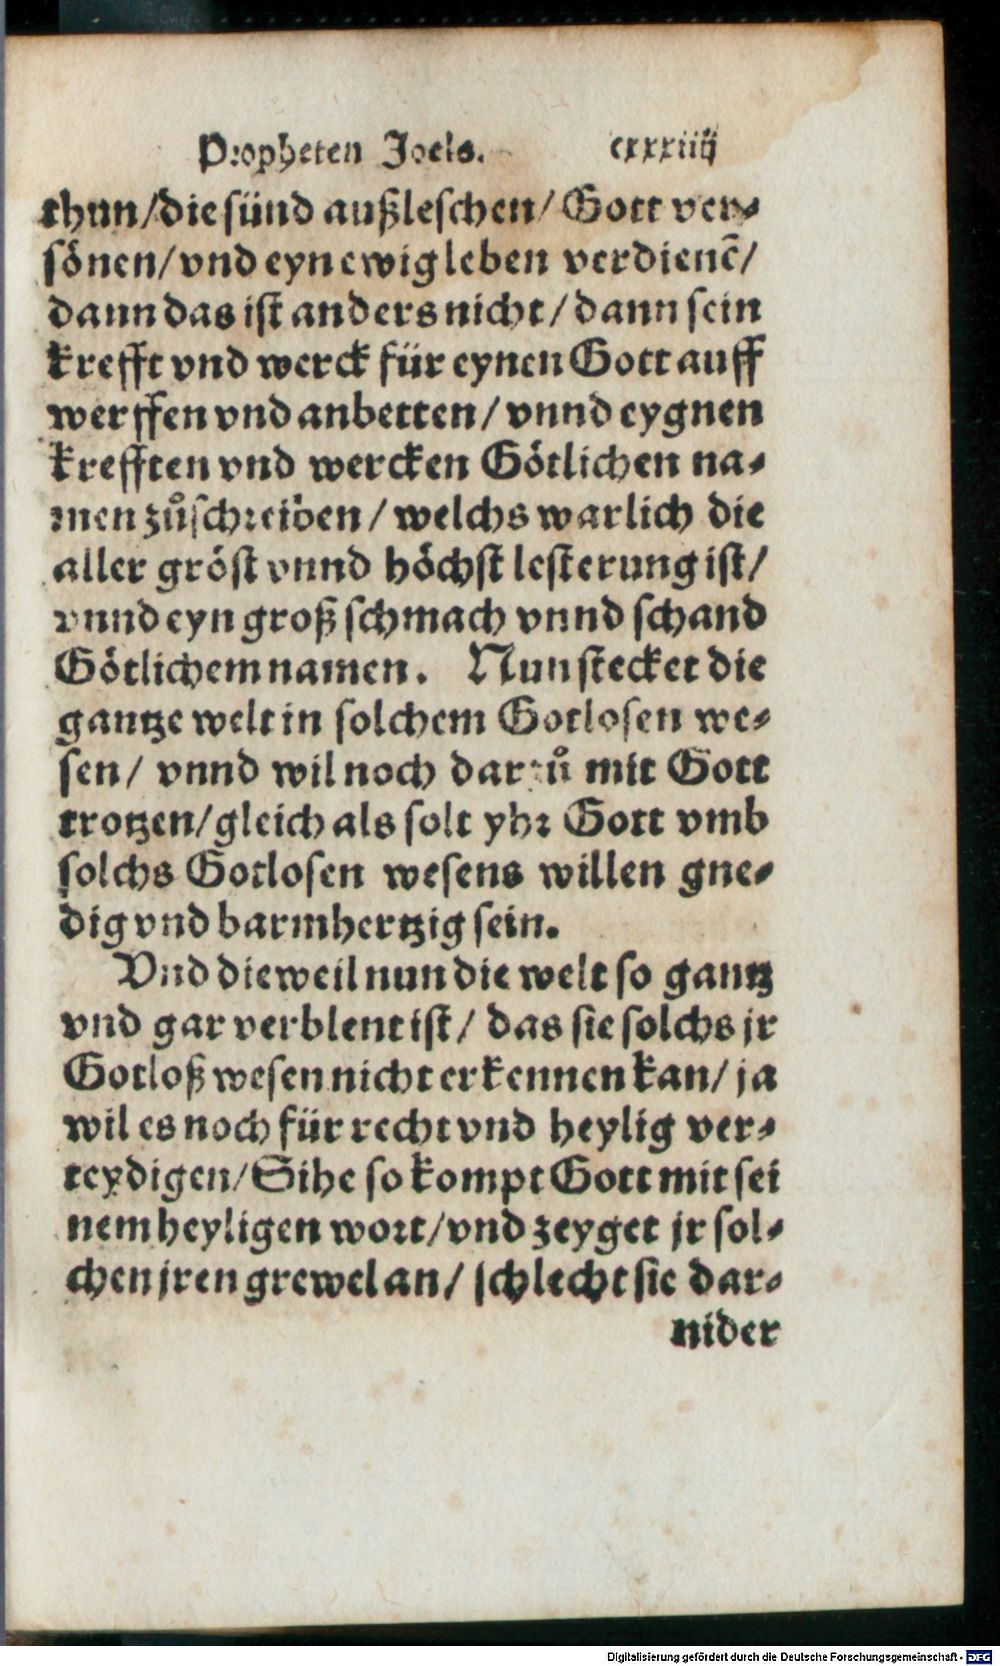 Propheten Joels. cxxxiiij
thun/die sünd außleschen/ Gott ver⸗
sönen/vnd eyn ewig leben verdienē/
dann das ist anders nicht/dann sein
krefft vnd werck für eynen Gott auff
werffen vnd anbetten/ vnnd eygnen
krefften vnd wercken Götlichen na⸗
men zůschreiben/welchs warlich die
aller gröst vnnd höchst lesterung ist/
vnnd eyn groß schmach vnnd schand
Götlichem namen. Nun stecket die
gantze welt in solchem Gotlosen we⸗
sen/ vnnd wil noch darzů mit Gott
trotzen/gleich als solt yhr Gott vmb
solchs Gotlosen wesens willen gne⸗
dig vnd barmhertzig sein.
Vnd dieweil nun die welt so gantz
vnd gar verblent ist/ das sie solchs jr
Gotloß wesen nicht erkennen kan/ ja
wil es noch für recht vnd heylig ver⸗
teydigen/Sihe so kompt Gott mit sei
nem heyligen wort/vnd zeyget jr sol⸗
chen jren grewel an/ schlecht sie dar⸗
nider
Digitalisierung gefördert durch die Deutsche Forschungsgemeinschaft - DFG